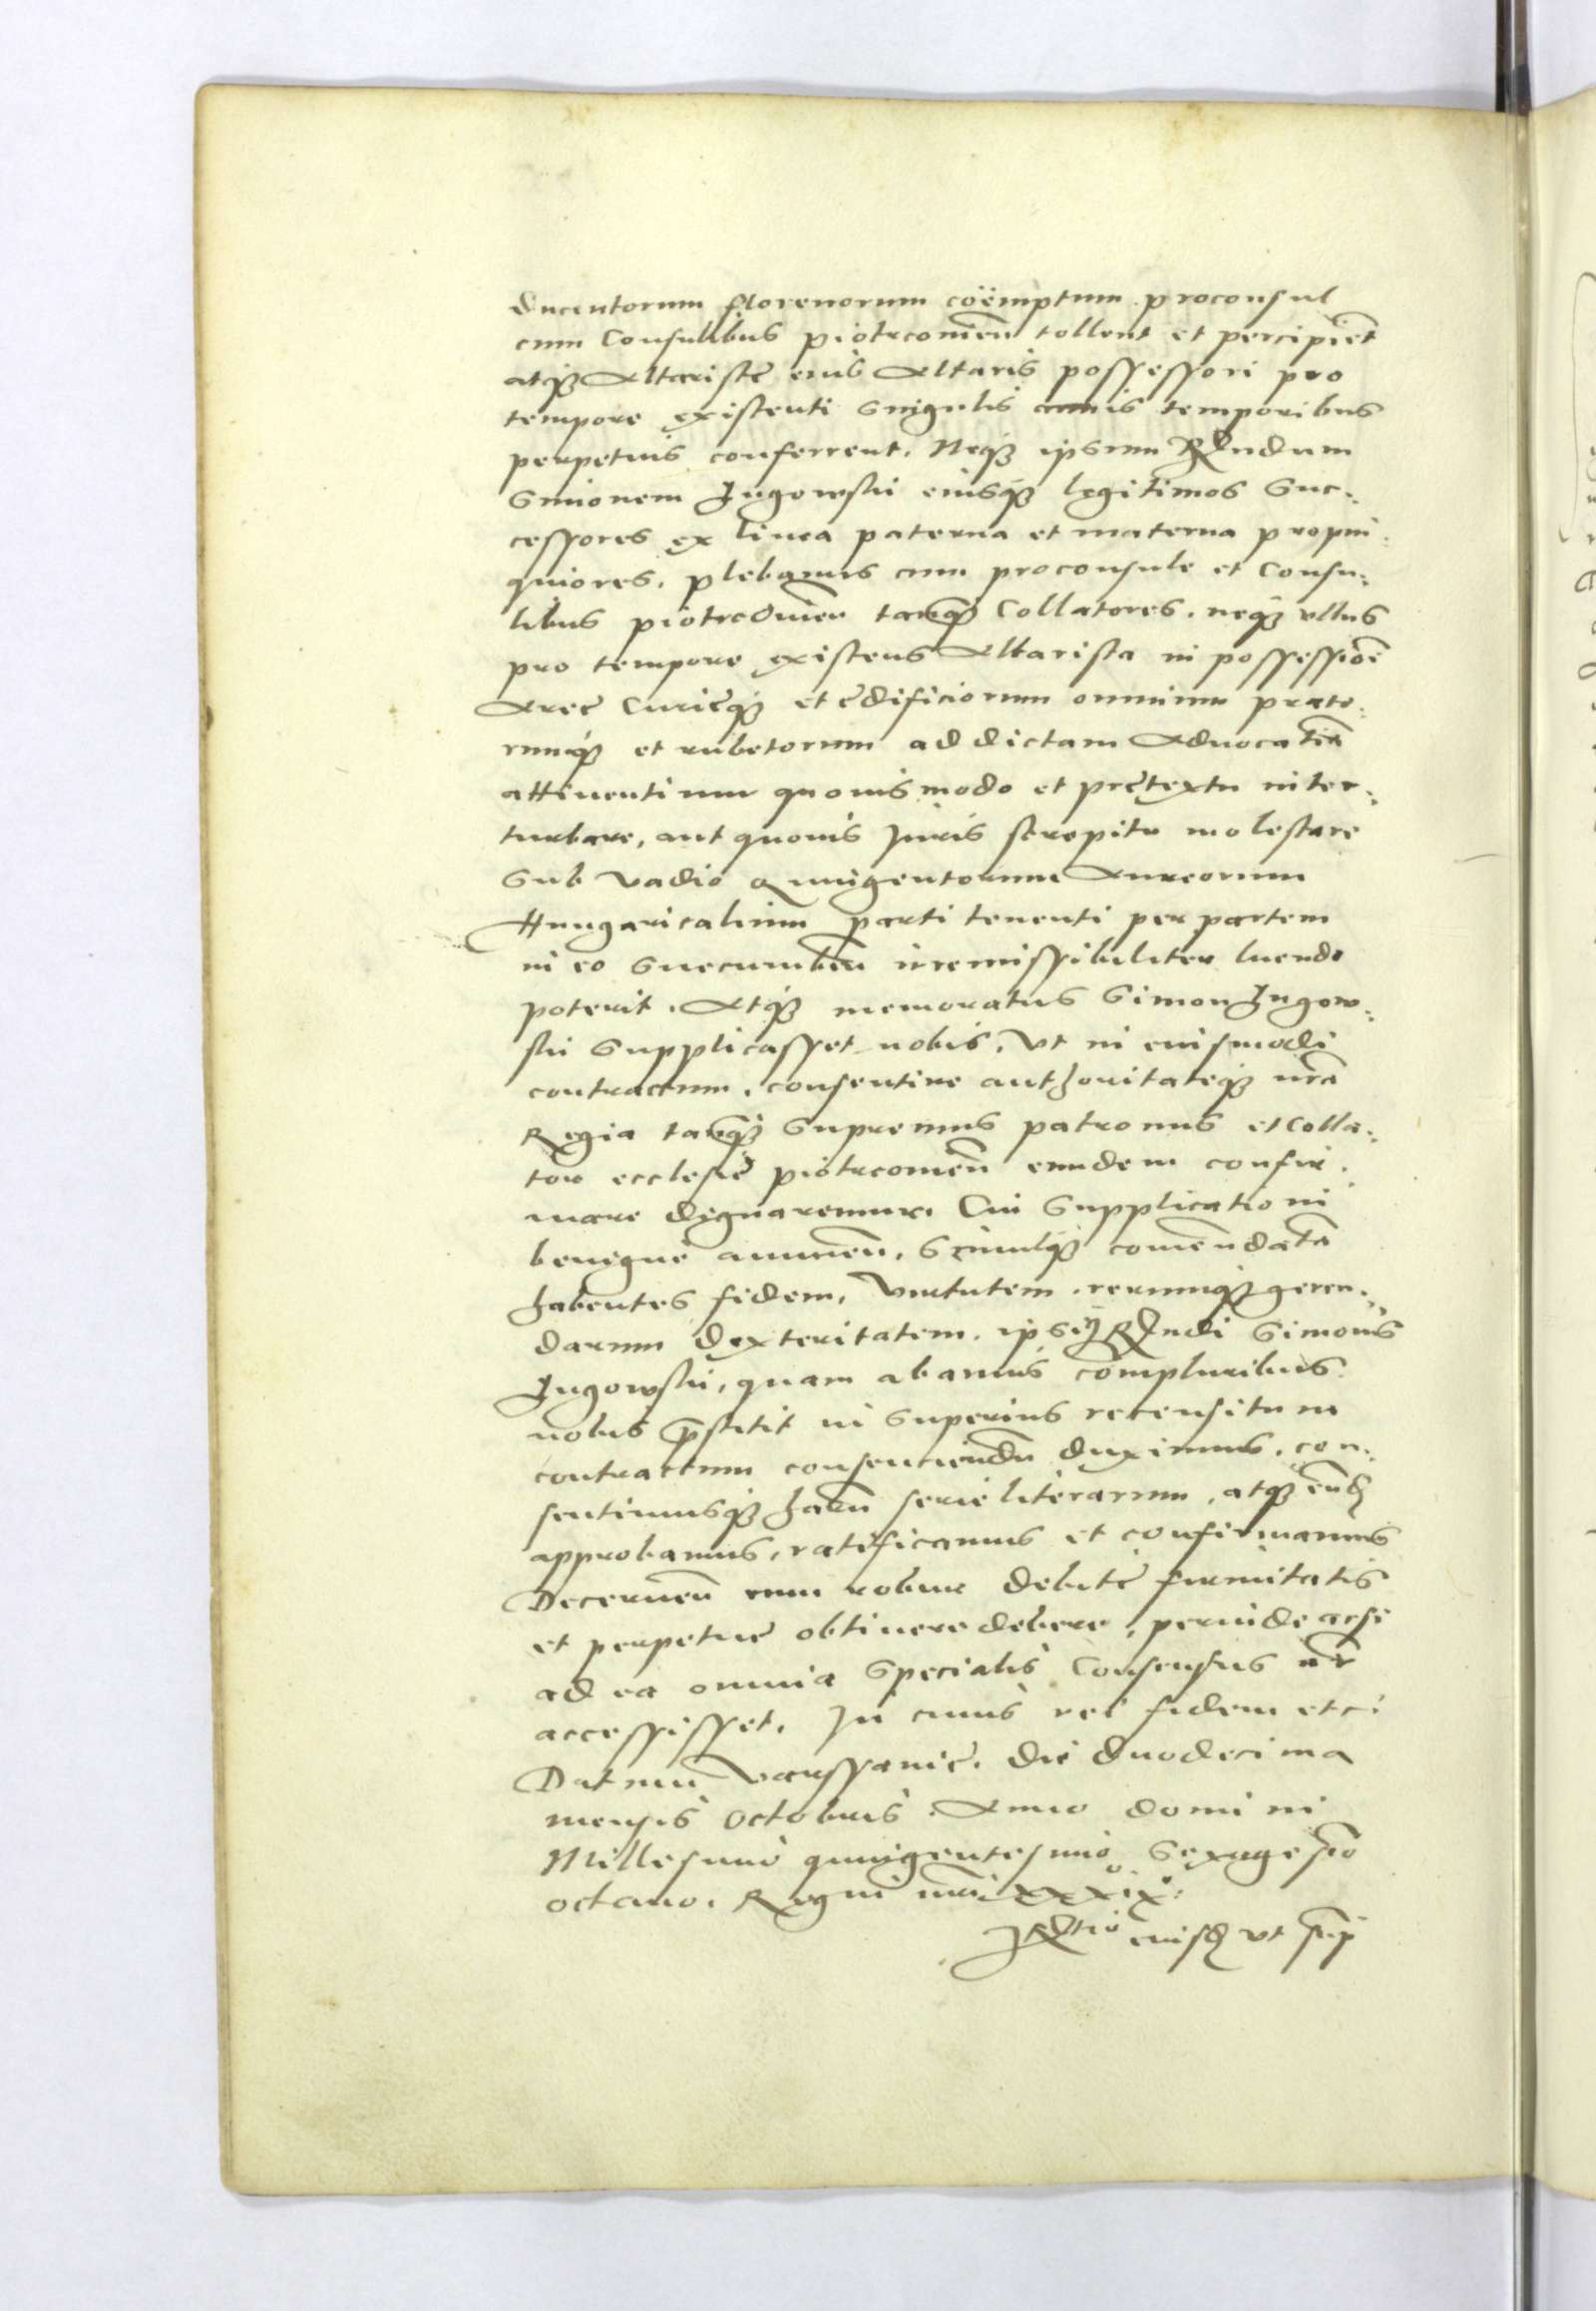 ducentorum florenorum coëmptum proconsul
cum Consulibus piotrcouien̄ tollent et percipiēt
atq₃ Altariste eius Altaris possessori pro
tempore existenti singulis annis temporibus
perpetuis conferrent. Neq₃ ipsum Rndum
Simonem Jugowski eiusq₃ legitimos suc:
cessores ex linea paterna et materna propin:
quiores, plebanus cum proconsule et Consu:
libus piotrcouien̄ tanq₃ Collatores, neq₃ vllus
pro tempore existens Altarista in possessiōe
Aree Curieq₃ et edificiorum omnium prato:
rumq₃ et rubetorum ad dictam Aduocatiā
attinentium quouismodo et pretextu inter:
turbare, aut quouis Juris strepitu molestare
sub vadio quingentorum Aureorum
Hungaricalium parti tenenti per partem
in eo succumben̄ irremissibiliter luendo
poterit. Atq₃ memoratus Simon Jugow:
ski supplicasset nobis, vt in eiusmodi
contractum, consentire authoritateq₃ nrā
Regia tanq₃ supremus patronus et Colla:
tor ecclesie piotrcouien̄ eundem confir:
mare dignaremur. Cui supplicationi
benigne annuen̄, simulq₃ comendatā
habentes fidem, virtutem, rerumq₃ geren:
darum dexteritatem, ipsiꝰ Rndi Simonis
Jugowski, quam ab annis compluribus
nobis p̄stitit in superius recensitum
contractum consentiendū duximus, con:
sentimusq₃ harū serie literarum, atq₃ eūd
approbamus, ratificamus et confirmamus
Decernen̄ eum robur debite firmitatis
et perpetue obtinere debere, perinde acsi
ad ea omnia specialis Consensus nr̄
accessisset. In cuius rei fidem etc:
Datum Varssauie, die duodecima
mensis Octobris. Anno domini
Millesimo quingentesimo Sexagesīo
octauo. Regni nrī xxxix:
Rltio eiusd vt sup̄